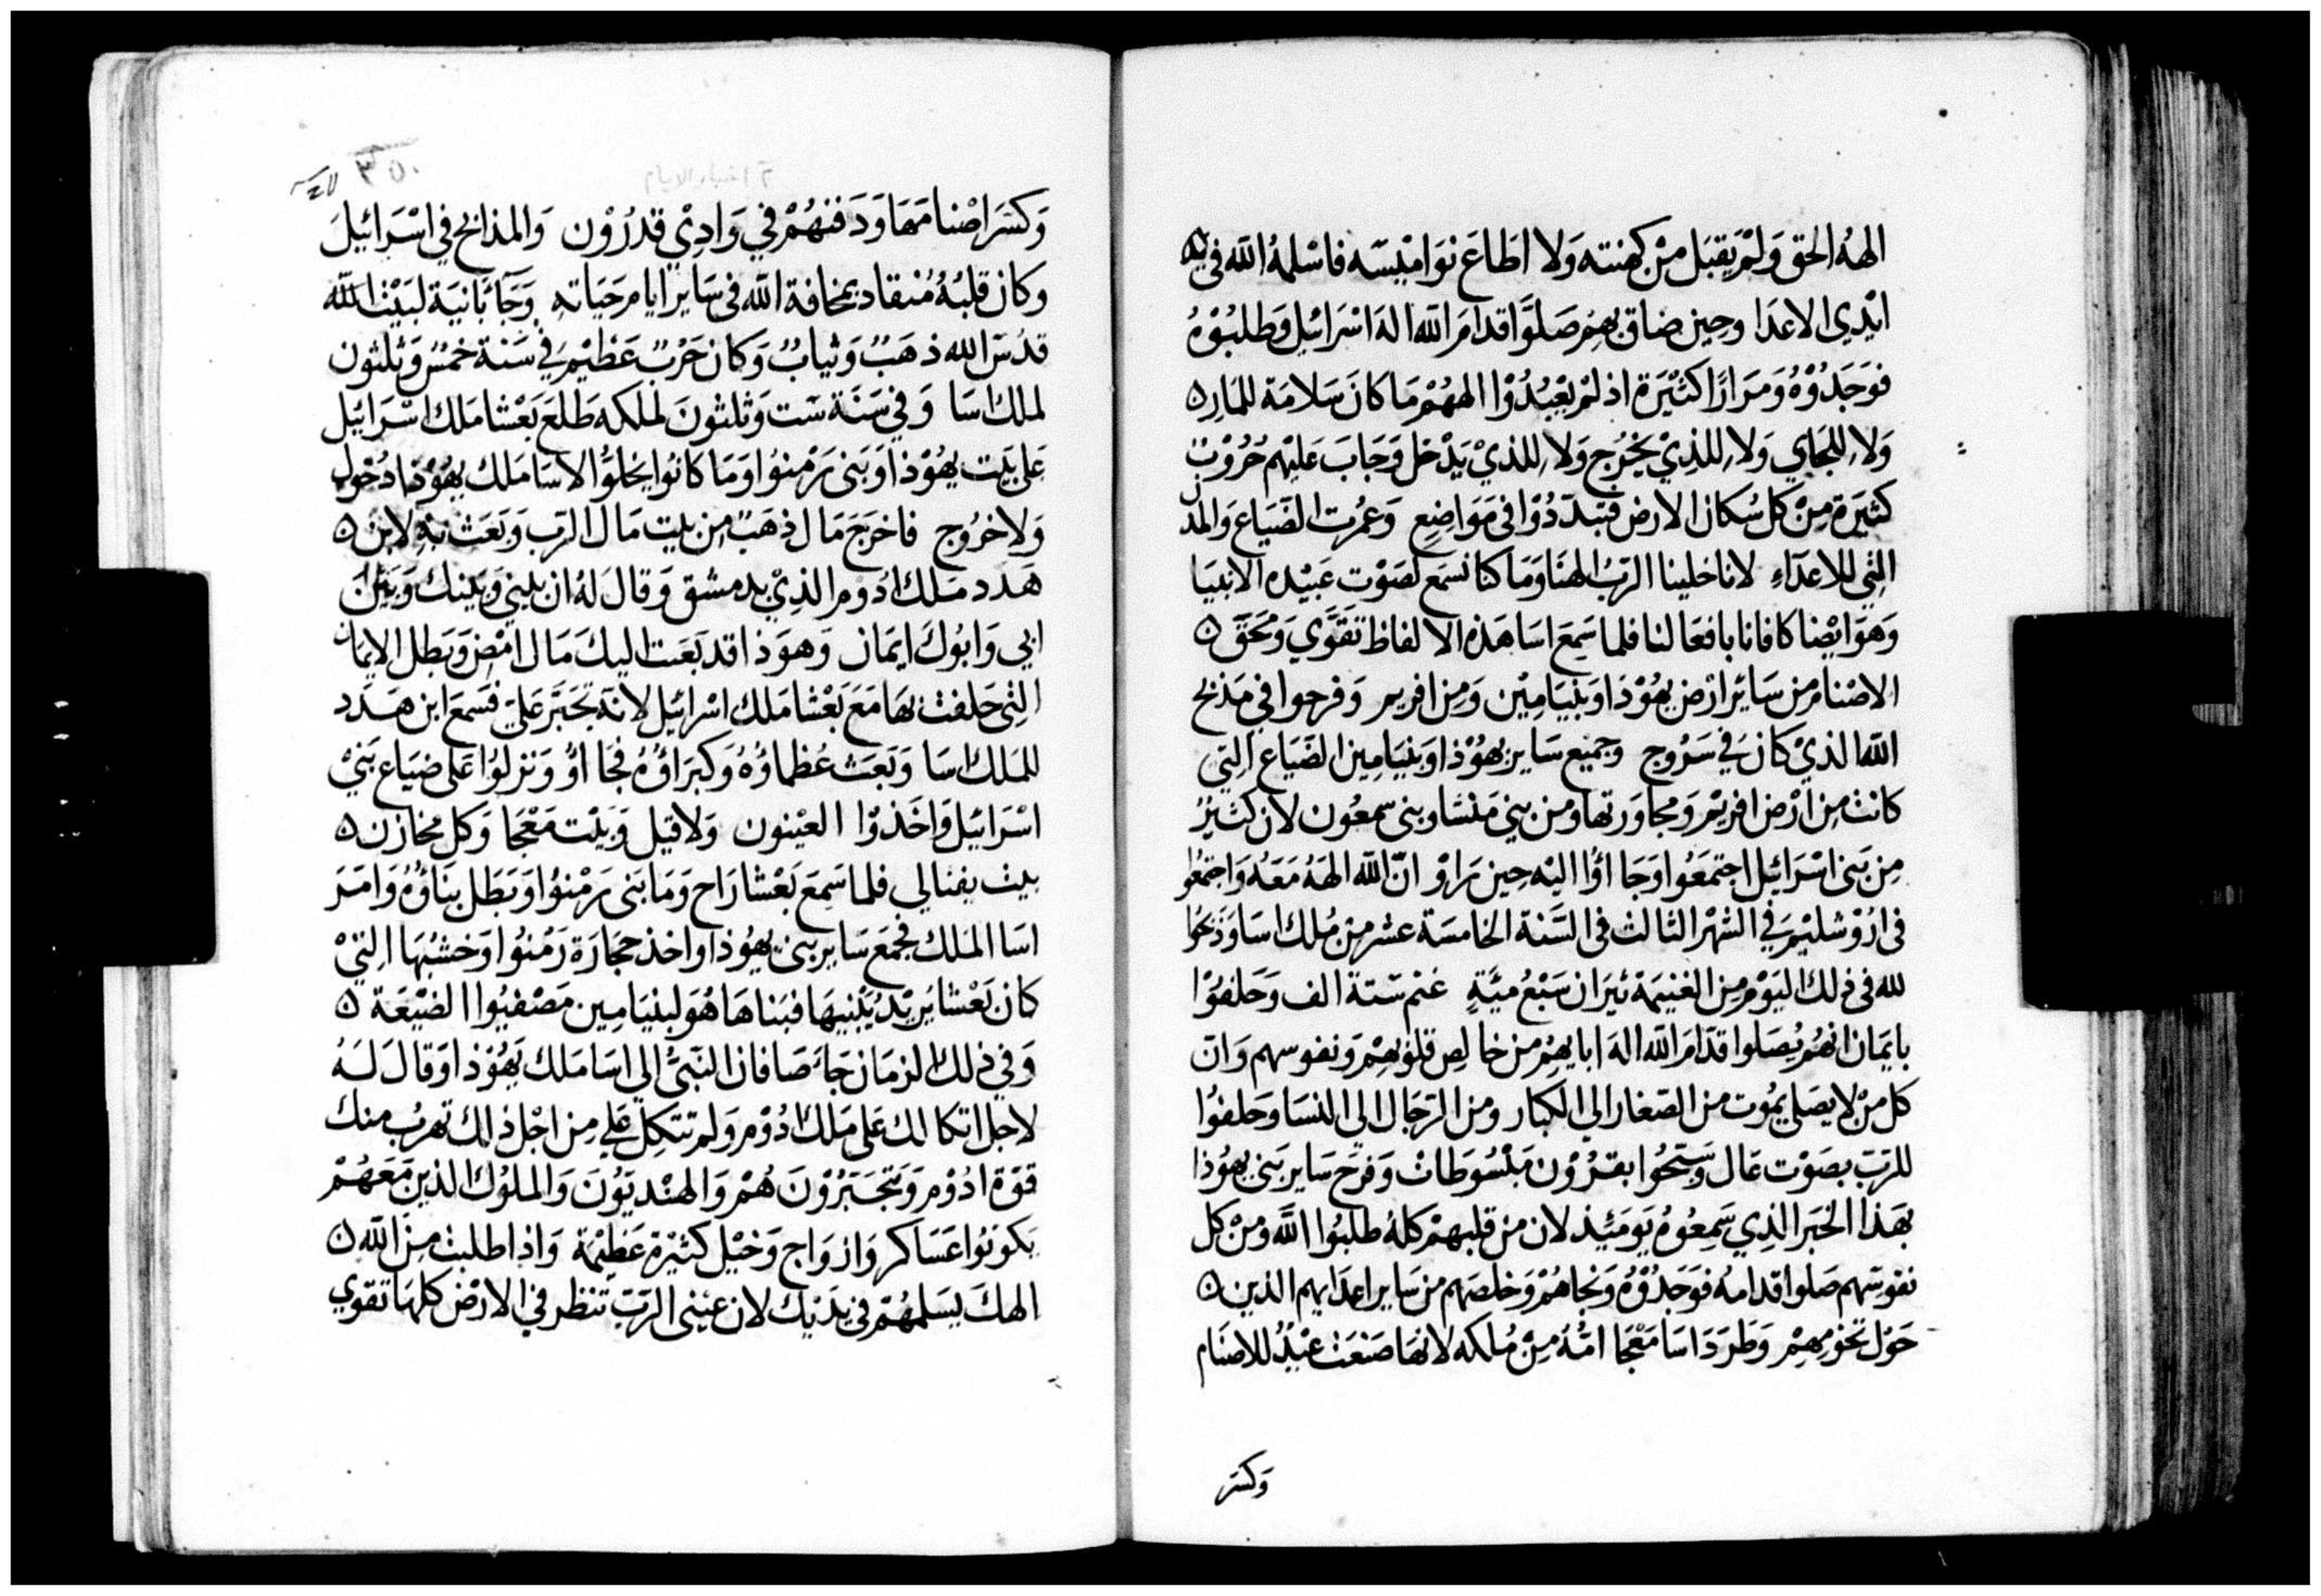 الهُ الحق وَلمْ يَقبَل مِنْ كهنته وَلا اطَاعَ نوَامْيسَه فاسْلمهُ الله في
ايْدي الاعدَا وحين ضاق بهِم صَلوَّا قدامَ الله الهَ اسْرَائيل وَطلبُوْهُ
فوَجَدُوْهُ وَمرَارًا كثيْرَة اذ لمْ يعْبُدُوْا الههُمْ مَا كانَ سَلامَة للمَار
وَلا للجَاي وَلا للذِيْ يخْرُج وَلا للذيْ يَدْخل وَجَابَ عَليْهم حُرُوْبْ
كثيَرة مِنْ كل سُكان الارض فتبدّدُوْا في مَوَاضِعٍ وَعمُرت الضَيَاع وَالمدن
التِي للاعدَآءِ لانا خلينا الربُ الهنَا وَمَا كنا نسمَع لصَوْت عَبيْده الانبيَا
وَهوَ ايْضا كافانا بافعَالنا فلما سَمِعَ اسَا هَذه الالفاظ تقوَّي وَمحَقَ
الاصْنام من سَائر ارْض يهُوْذَا وَبنيَامِيْن وَمِن افريم وَفرحوا في مَذبح
الله الذيْ كانَ في سَرُوج وجميْع سَاير يهُوْذا وبنيَامِين الضَيَاع التِي
كانتْ مِن ارْض افريْم وَمجاورتها ومن بني مَنشا وبنى سمعُون لان كثيرْ
مِن بَني اسْرَائيل اجتمَعُوا وَجَا اوُّا اليْه حِين رَاوْ انّ الله الههُ مَعَهُ وَاجتمعُوا
في ارُوْشليْم في الشهْر الثالث في السَّنة الخامسَة عشر من مُلك اسَا وَذبحُوا
لله في ذلك اليَوْم مِن الغنيمَة ثيَران سَبْعُ ميَّةٍ غنم سَتة الف وَحَلفوُا
بايمَان انهُم يُصَلوا قدَامَ الله الهَ ابايهِمْ من خالِص قلوْبهمْ وَنفوسهم وَانّ
كل مَنْ لا يصَلي يمُوت من الصَغار الي الكبَار ومن الرجَال الي النسَا وحَلفوُا
للربّ بصَوْت عَال وَسَبّحُوا بقرُوْن مَبْسُوَطاتْ وَفرَح سَاير بَني يهُوْذا
بهَذا الخبَر الذِي سَمِعُوهُ يَومَئيذ لان من قلبهمْ كلهُ طلبُوا الله وَمنْ كل
نفوسَهم صَلوا قدامهُ فوَجَدُوْهُ وَنجاهُمْ وَخلصَهم من سَاير اعدَايهم الذين
حَوْل تخومِهِمْ وَطرَدَ اسَا مَعْجَا امّهُ مِنْ مُلكه لانهَا صَنعَتْ عيْدُ للاصْنَام
وَكسَر
وَكسَر اصْنامَهَا وَدَفنهُمْ في وَادِيْ قدرُوْن وَالمذابح في اسْرَائيلَ
وكان قلبهُ مُنقاد بمخافة الله في سَاير ايام حَيَاته وَجَآ بَانيَة لبَيْت الله
قدُسْ الله ذهَبٌ وَثيابٌ وَكان حَرْبٌ عَظيْم في سَنة خمسْ وَثلثون
لملك اسَا وَفي سَنَة ست وَثلثونَ لملكه طَلعَ بَعْشا ملك اسْرَائيل
عَلي بيَت يهُوْذا وَبَنى رَمْنوُا وَمَا كانوُا يخلوُّا لاسَا مَلك يهُوْذا دُخول
وَلا خرُوج فاخرَجَ مَال ذهَبٌ مِن بيت مَال الرّب وَبَعَث بهِ لابن
هَدد مَلك ادوم الذِيْ بدمشق وَقالَ لهُ ان بيني وَبيْنك وَبيْن
ابي وَابُوكَ ايمَان وَهوَذا قد بَعَت اليكَ مَال امْض وَبَطل الايمَان
التي حَلفت بهَا مَعَ بَعْشا مَلك اسْرَائيل لانهُ تجَبَّر عَليّ فسَمعَ ابن هَدَد
للمَلك اسَا وَبَعَث عُظماؤُهُ وَكبرَاؤُهُ فجَا اوُّ وَنزلوُا عَلي ضيَاع بَنيْ
اسْرَائيل وَاخَذوْا العيْنون وَلاقيل وَبيْت مَعْجَا وَكل مخازن
بيت يفنالي فلما سَمِعَ بَعْشا رَاح وَمَا بَنى رَمْنوُا وَبَطل بنَاؤُهُ وَامَرَ
اسَا المَلك فجمَعَ سَاير بَني يهُوذا واخذ حجَارَة رَمْنوُا وَخشبُهَا التِيْ
كان بَعْشا يَريْدُ يَبْنيهَا فبنَاهَا هُوَ لبنيَامِين مَصْفيُوا الضيْعَة
وَفي ذلك الزمَان جَآءَ صَافان النَبىُّ الي اسَا مَلك يَهُوْذا وَقالَ لَهُ
لاجل اتكالك عَلى مَلك ادُوْم وَلم تتكِل عَلي مِن اجْل ذلك تهرُب منك
قوّة ادُوْم وَيتجَبّرُوْنَ هُمْ وَالهنْديَوُنَ وَالملوُك الذينَ مَعَهُمْ
يَكونوُا عَسَاكر وَازوَاج وَخيْل كثيْرَة عَظِيْمة وَاذا طلبت مِنَ الله
الهكَ يسَلمهُمْ في يدَيْك لان عيْنى الربّ تنظر في الارْض كلهَا تقوي